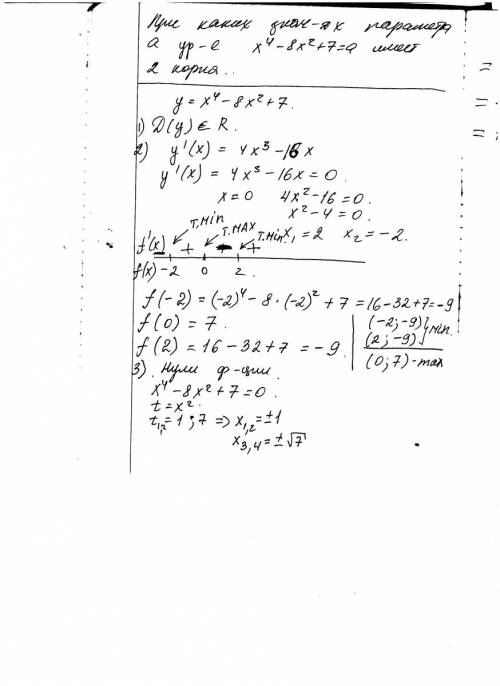 При каких знач-ях параметра
а ур-е x⁴-8x²+7=a имеет
2 корня..
y = x⁴-8x²+7.
1) D(y) ∈ R.
2) y'(x) = 4x³-16x
y'(x) = 4x³-16x = 0.
x=0 4x²-16=0.
x²-4=0.
x₁=2 x₂=-2.
т.min т.max т.min
f'(x) + - +
f(x) -2 0 2.
f(-2)=(-2)⁴-8·(-2)²+7=16-32+7=-9
f(0)=7.
f(2)=16-32+7=-9.
(-2;-9)
(2;-9) } min.
(0;7)-max
3). Нули ф-ции.
x⁴-8x²+7=0.
t=x².
t₁,₂=1;7 => x₁,₂=±1
x₃,₄=±√7